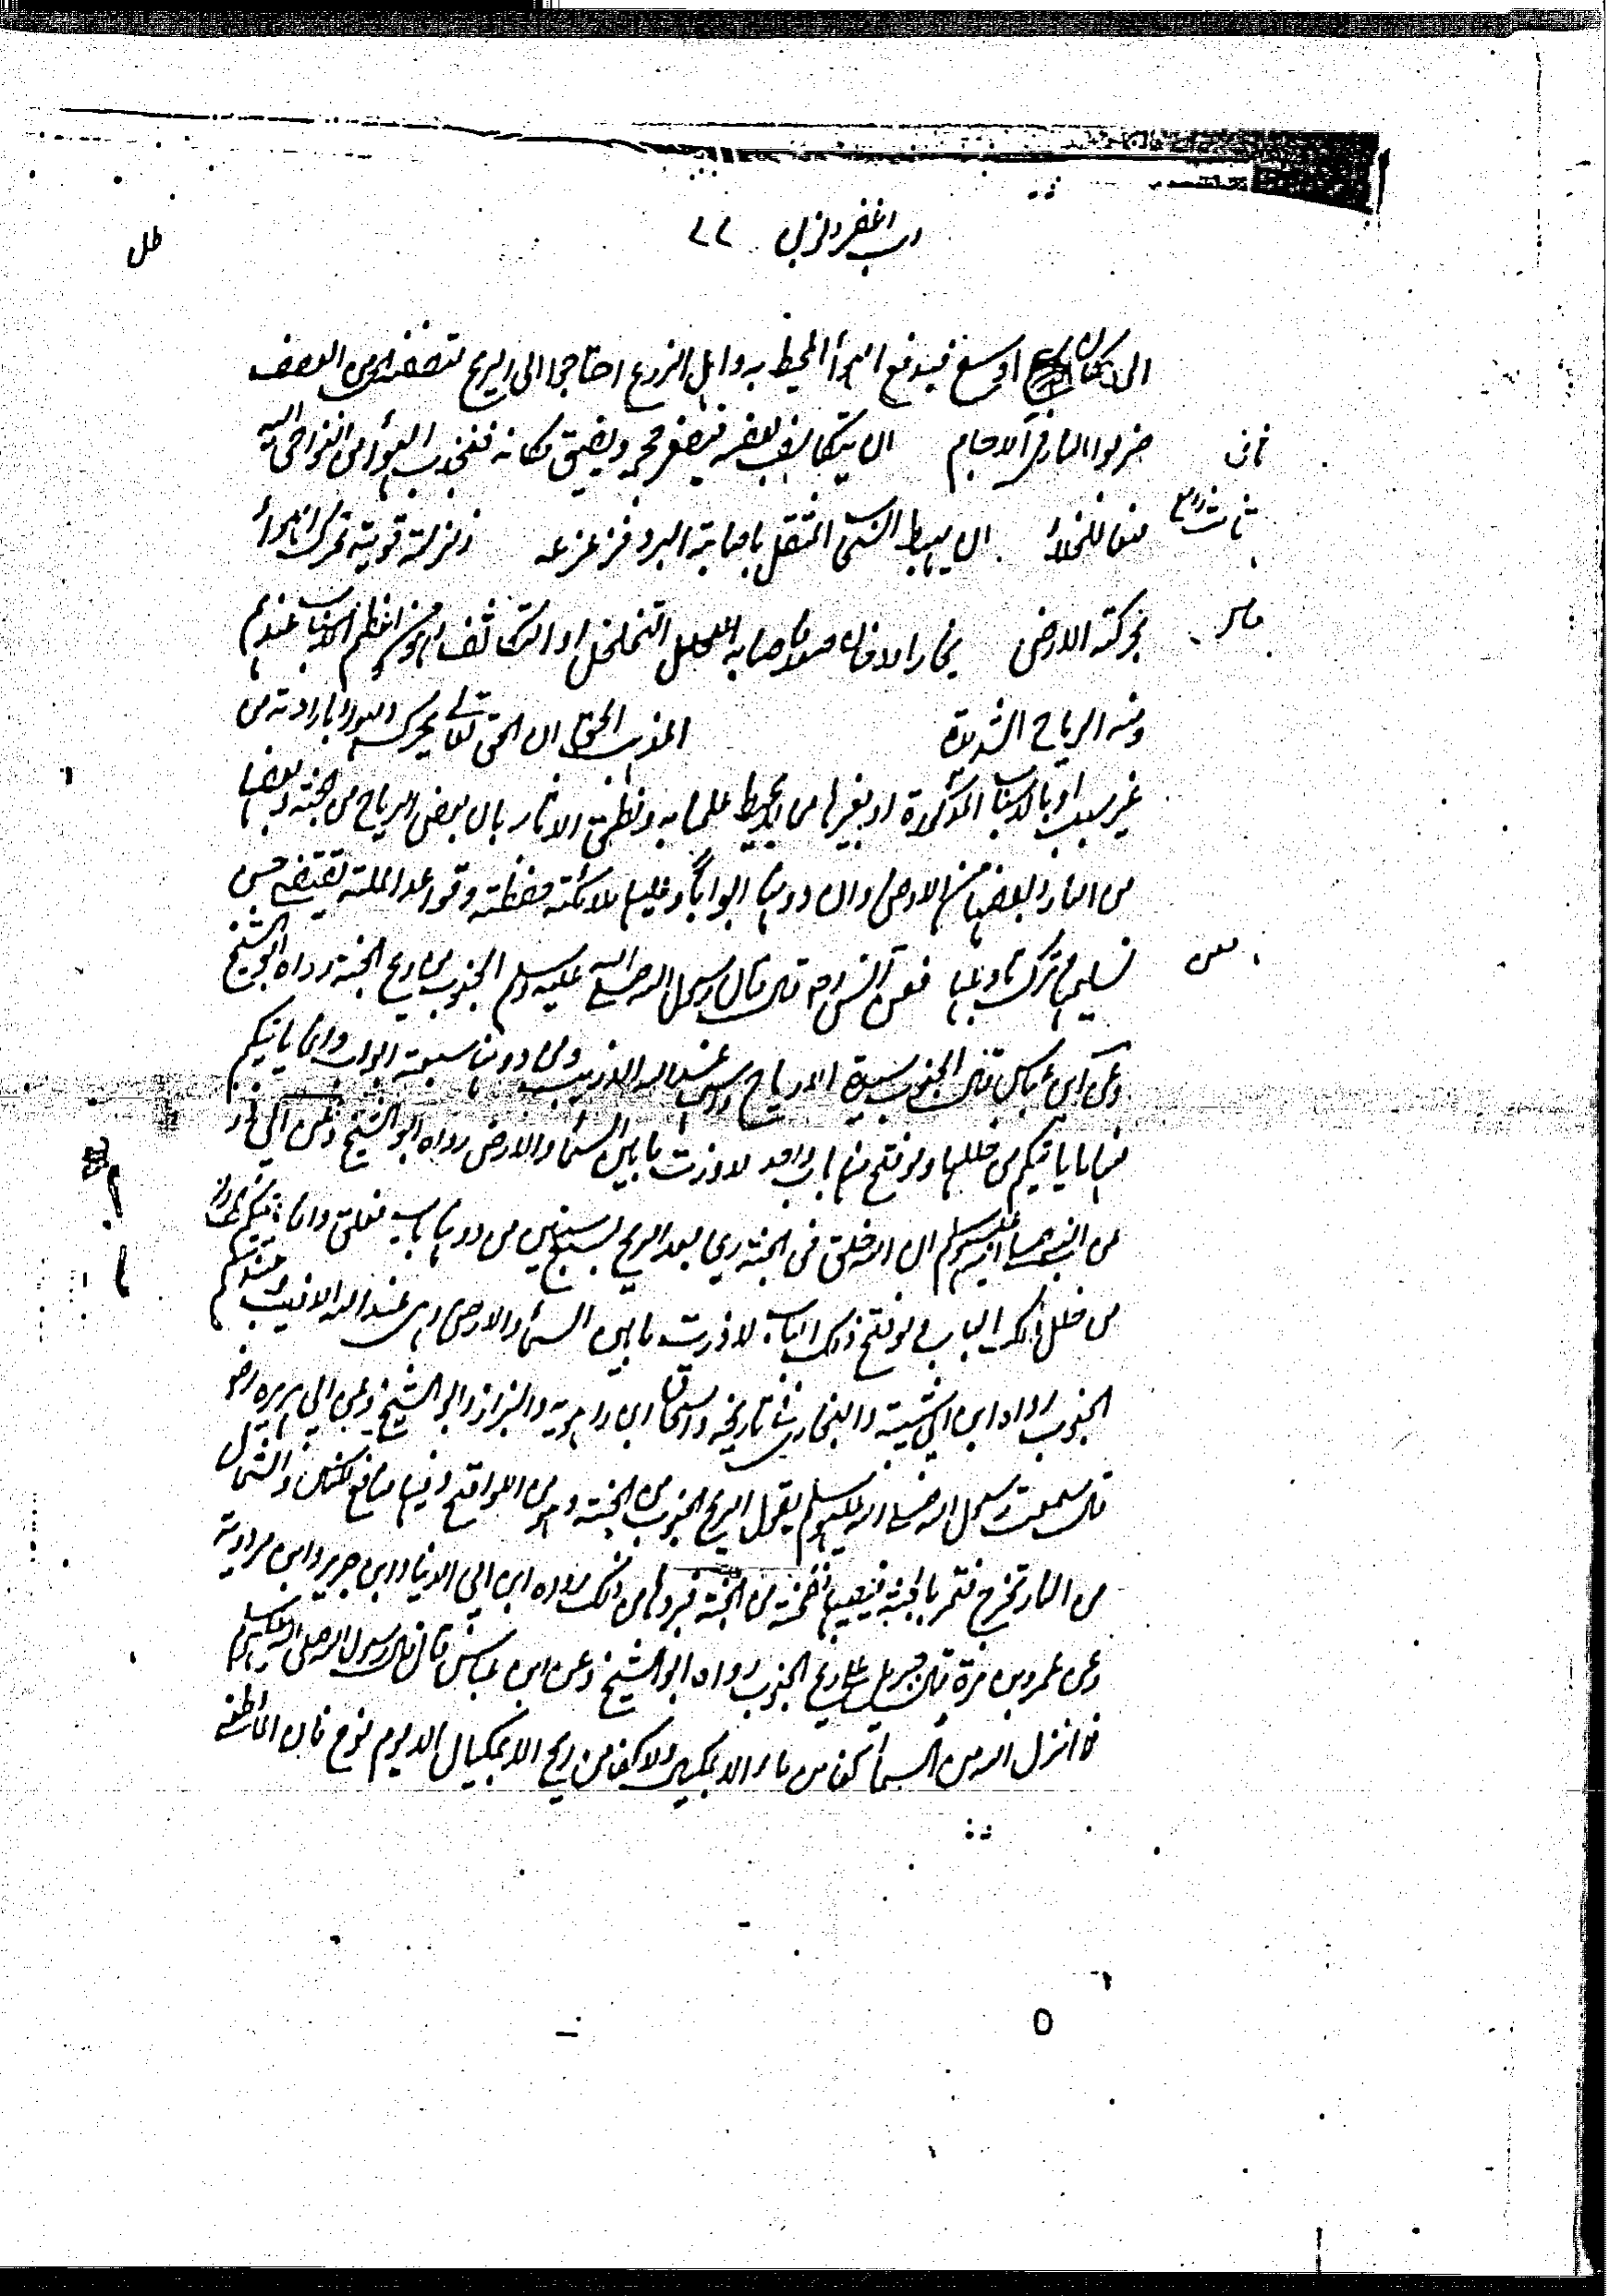 رب اغفر وارحم ٢٢
طل
الى مكان اوسع فيدفع الهوأ المحيط به واهل الزرع احتاجوا الى الريح لتصفيته من العصف
ثانى ضربوا النار فى الاجام ان يتكاثف بعضه فيصغر حجمه ويضيق مكانه فينجذب الهوأ من النواحى اليه
ثالث رابع ان يهبط الشئ المثقل باصابة البرد فزعزعه وزلزلة قوية تحرك الهوأ
بحركة الارض بخار او دخان التخلخل او التكاثف وهو من اعظم الاسباب عندهم
ومنه الرياح الشديدة المذهب الحق ان الحق تعالى يحرك الهوأ بارادته من
غير سبب او بالاسباب المذكورة او بغيرها مما لا يحيط علمنا به ونطقت الاثار بان بعض الرياح من الجنة وبعضها
من النار وبعضها من الارض وان دونها ابوابا وعليها ملائكة حفظة وقواعد الملة تقتضى حسن
تسليمها وترك تاويلها فعن انس رض قال قال رسول الله صلى الله عليه وسلم الجنوب من ريح الجنة رواه ابو الشيخ
وعن ابن عباس قال الجنوب سيدة الارياح واسمها عند الله الازيب ومن دونها سبعة ابواب وانما ياتيكم
منها ما ياتيكم من خللها ولو فتح منها باب واحد لاذرت ما بين السمأ والارض رواه ابو الشيخ وعن ابى ذر
عن النبى صلى الله عليه وسلم ان الله خلق فى الجنة ريحا بعد الريح بسبع سنين من دونها باب مغلق وانما ياتيكم الروح
من خلل ذلك الباب ولو فتح ذلك الباب لاذرت ما بين السمأ والارض وهى عند الله الازيب وعندكم
الجنوب رواه ابن ابى شيبة والبخارى فى تاريخه واسحاق ابن راهويه والبزار وابو الشيخ وعن ابى هريره رض
قال سمعت رسول الله صلى الله عليه وسلم يقول الريح الجنوب من الجنة وهى من اللواقح وفيها منافع للناس والشمال
من النار تخرج فتمر بالجنة فيصيبها نفحة من الجنة فبردها من ذلك رواه ابن ابى الدنيا وابن جرير وابن مردوية
وعن عمرو بن مرة قال جبريل على ريح الجنوب رواه ابو الشيخ وعن ابن عباس قال قال رسول الله صلى الله عليه وسلم
ما انزل الله من السمأ كفا من مأ الا بمكيال ولا كفا من ريح الا بمكيال الا يوم نوح فان المأ طغى